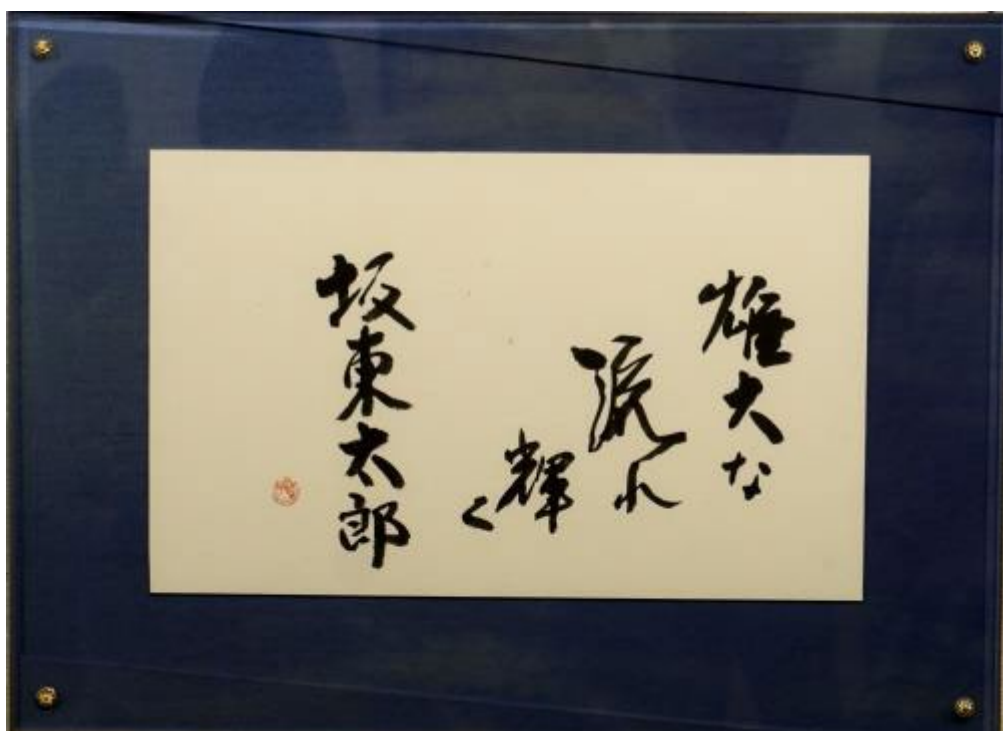 雄大な
流れ
輝く
坂東太郎